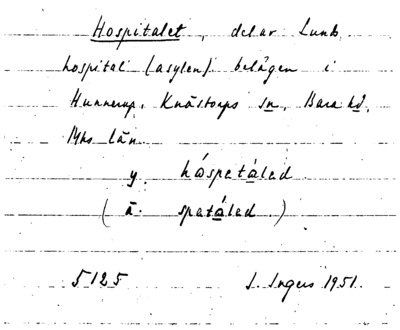 Hospitalet, del av Lunds
hospital (asylen) belägen i
Hunnerup, Knästorps sn, Bara hd.
Mhs län.
y. håspetáled
(ä. spatáled)
5125 I. Ingers 1951.